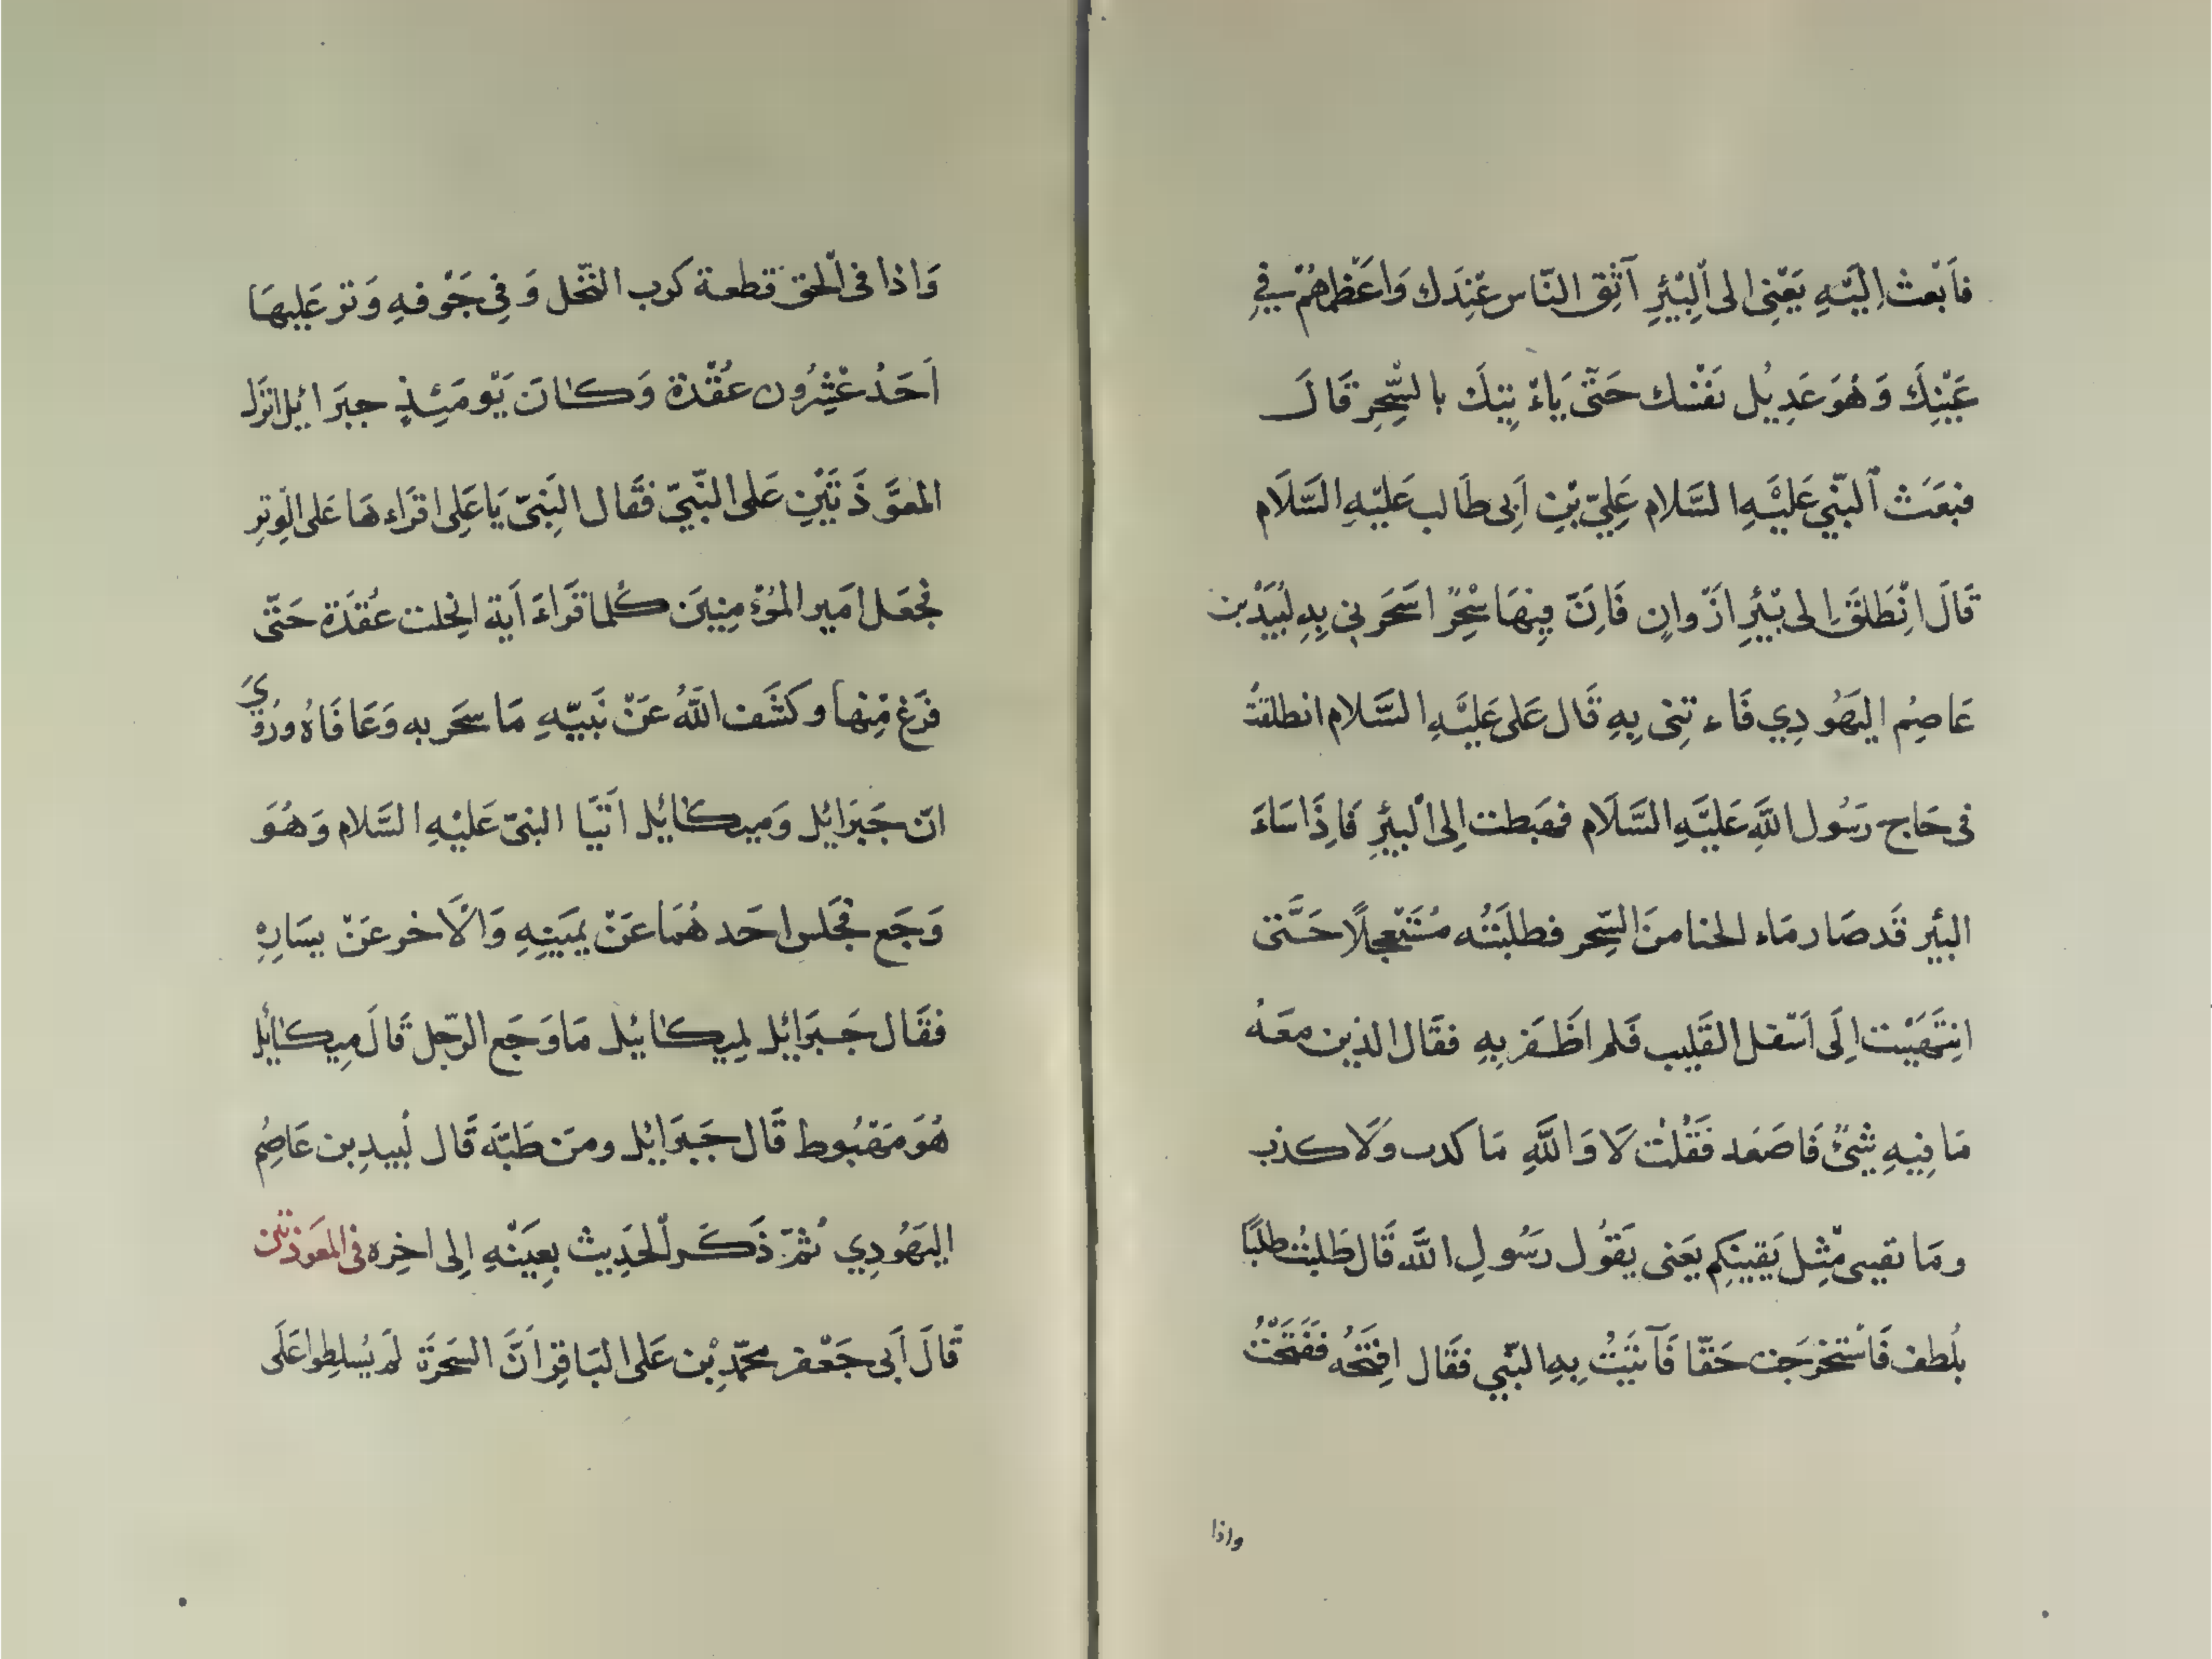 فَابْعث اِلَيْهِ يَعْنِى الى الْبِئْرِ آثِق النّاس عِنْدَك وَاعَظْمهُمْ فِي
عَيْنِكَ وَهُوَ عَدِيْل نَفْسك حَتّٰى يَاءْتِيكَ بالسِّحِرِ قَالَ
فبَعَثَ النّبي عَلَيْهِ السَّلام عَلِيّ بْنِ اَبِى طَالب عَلَيْهِ السَّلَام
قَالَ انْطَلَقَ اِلى بِئْرِ اَزْوانٍ فَاِنّ فِيْهَا سِْحرً ا سَحَرَ بى بِهِ لُبَيَدْ بن
عَاصِمُ اليَهُودِي فَاء تِنى بِهِ قَال عَلى عَلَيْهِ السَّلام انطلقتُ
فى حَاج رَسُول اللَّهِ عَلَيْهِ السَّلَام فهَبطت اِلى الْبئْرِ فَاِذَا مَاءَ
البئر قَد صَار مَاء الحنا منَ السِّحر فطلَبَتُه مُسْتَعْجِلًا حَتَّى
انِتَهَيْت اِلَى اَسْفل القَلِيب فَلم اظَفَر بِهِ فقَال الذين معَهُ
مَا فِيهِ شَىْءٌ فَاصَعَد فَقُلْتُ لَا وَاللَّهِ مَا كدب وَلَا كذب
ومَا نقيى مْثِل يَقِينَكِم يَعَنى يَقُول رَسُولِ اللَّه قَال طَلبْتُ طلبًا
بلُطف فَاسْتَخْرَجَت حَقّا فَآتَيَتُ بِهِ النّبي فقَال افِتَحُه فَفَتَحْتُ
واذا
وَاذا فى الْحق قطعة كَرب النّخل وَفى جَوْفهِ وَتر عَليهَا
اَحَدُ عْشِرُون عُقْدة وَكَانَ يَوْمَئِذٍ جبَرَائيل انزَل
المعَوّذَ تَيْنِ عَلى النّبيّ فقَال النَبىّ يَا عَلِى اقرَاء هَا عَلى الْوِترِ
فجَعَل امَير المُؤْمِنِينَ كُلما قَرَاءَ اَية انِحلت عُقدَة حَتّى
فَرَغ مْنِها وكَشَف اللَّهُ عَنْ نَبِيّهِ مَا سحَر به وَعَافَاهُ ورُوِيَ
انّ جَبَرائِل وَميكائِل اَتَيَا النبىّ عَليْهِ السَّلام وَهُوَ
وَجَع فجَلس احَد هُمَا عَنْ يمَينِهِ وَالْاَخر عَنْ يسَارِهِ
فقَال جَبرَائِل لمِيكَائيل مَا وَجَع الرّجل قَالَ مِيكائِل
هُوَ مَهْبُوط قَال جَبَرَائِل ومَن طَبّهَ قَال لُبيدِ بن عَاصِمُ
اليَهُودِي ثمّ ذَكَر الْحَدِيث بِعيَنْهِ اِلى اخِره فى المعَوذتين
قَالَ اَبى جَعْفر محمّد بْن عَلى البَاقِر اَنَّ السَحَرَةَ لَم يُسلِطوا عَلَى